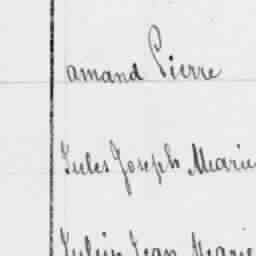 amand Pierre
Jules Joseph Marie
Julien Jean Marie